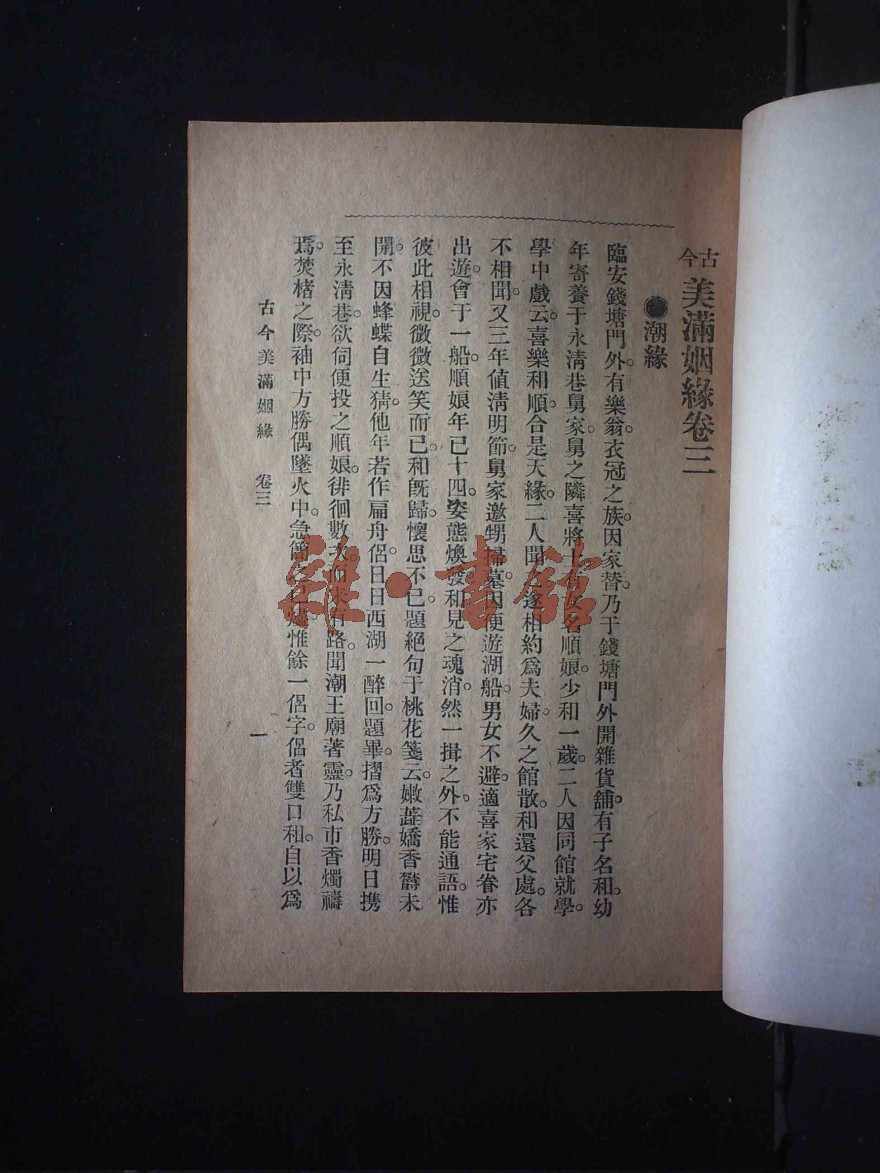 古今美滿姻緣卷三
●潮緣
臨安錢塘門外。有樂翁。衣冠之族。因家替。乃于錢塘門外開雜貨舖。有子名和。幼
年寄養于永清巷舅家。舅之隣喜將士有女名順娘。少和一歲。二人因同館就學。
學中戲云。喜樂和順。合是天緣。二人聞之遂相約爲夫婦。久之館散。和還父處。各
不相聞。又三年。値清明節。舅家邀甥掃墓。因便遊湖船。男女不避。適喜家宅眷亦
出遊。會于一船。順娘年已十四。姿態煥發。和見之魂消。然一揖之外。不能通語。惟
彼此相視。微微送笑而已。和旣歸。懷思不已。題絕句于桃花箋云。嫩蕋嬌香欝未
開。不因蜂蝶自生猜。他年若作扁舟侶。日日西湖一醉回。題畢。摺爲方勝。明日携
至永清巷。欲伺便投之順娘。徘徊數次。而未有路。聞潮王廟著靈。乃私市香燭禱
焉。焚楮之際。袖中方勝偶墜火中。急簡之已燼。惟餘一侶字。侶者雙口和。自以爲
古今美滿姻緣 卷三
一
雜·書館